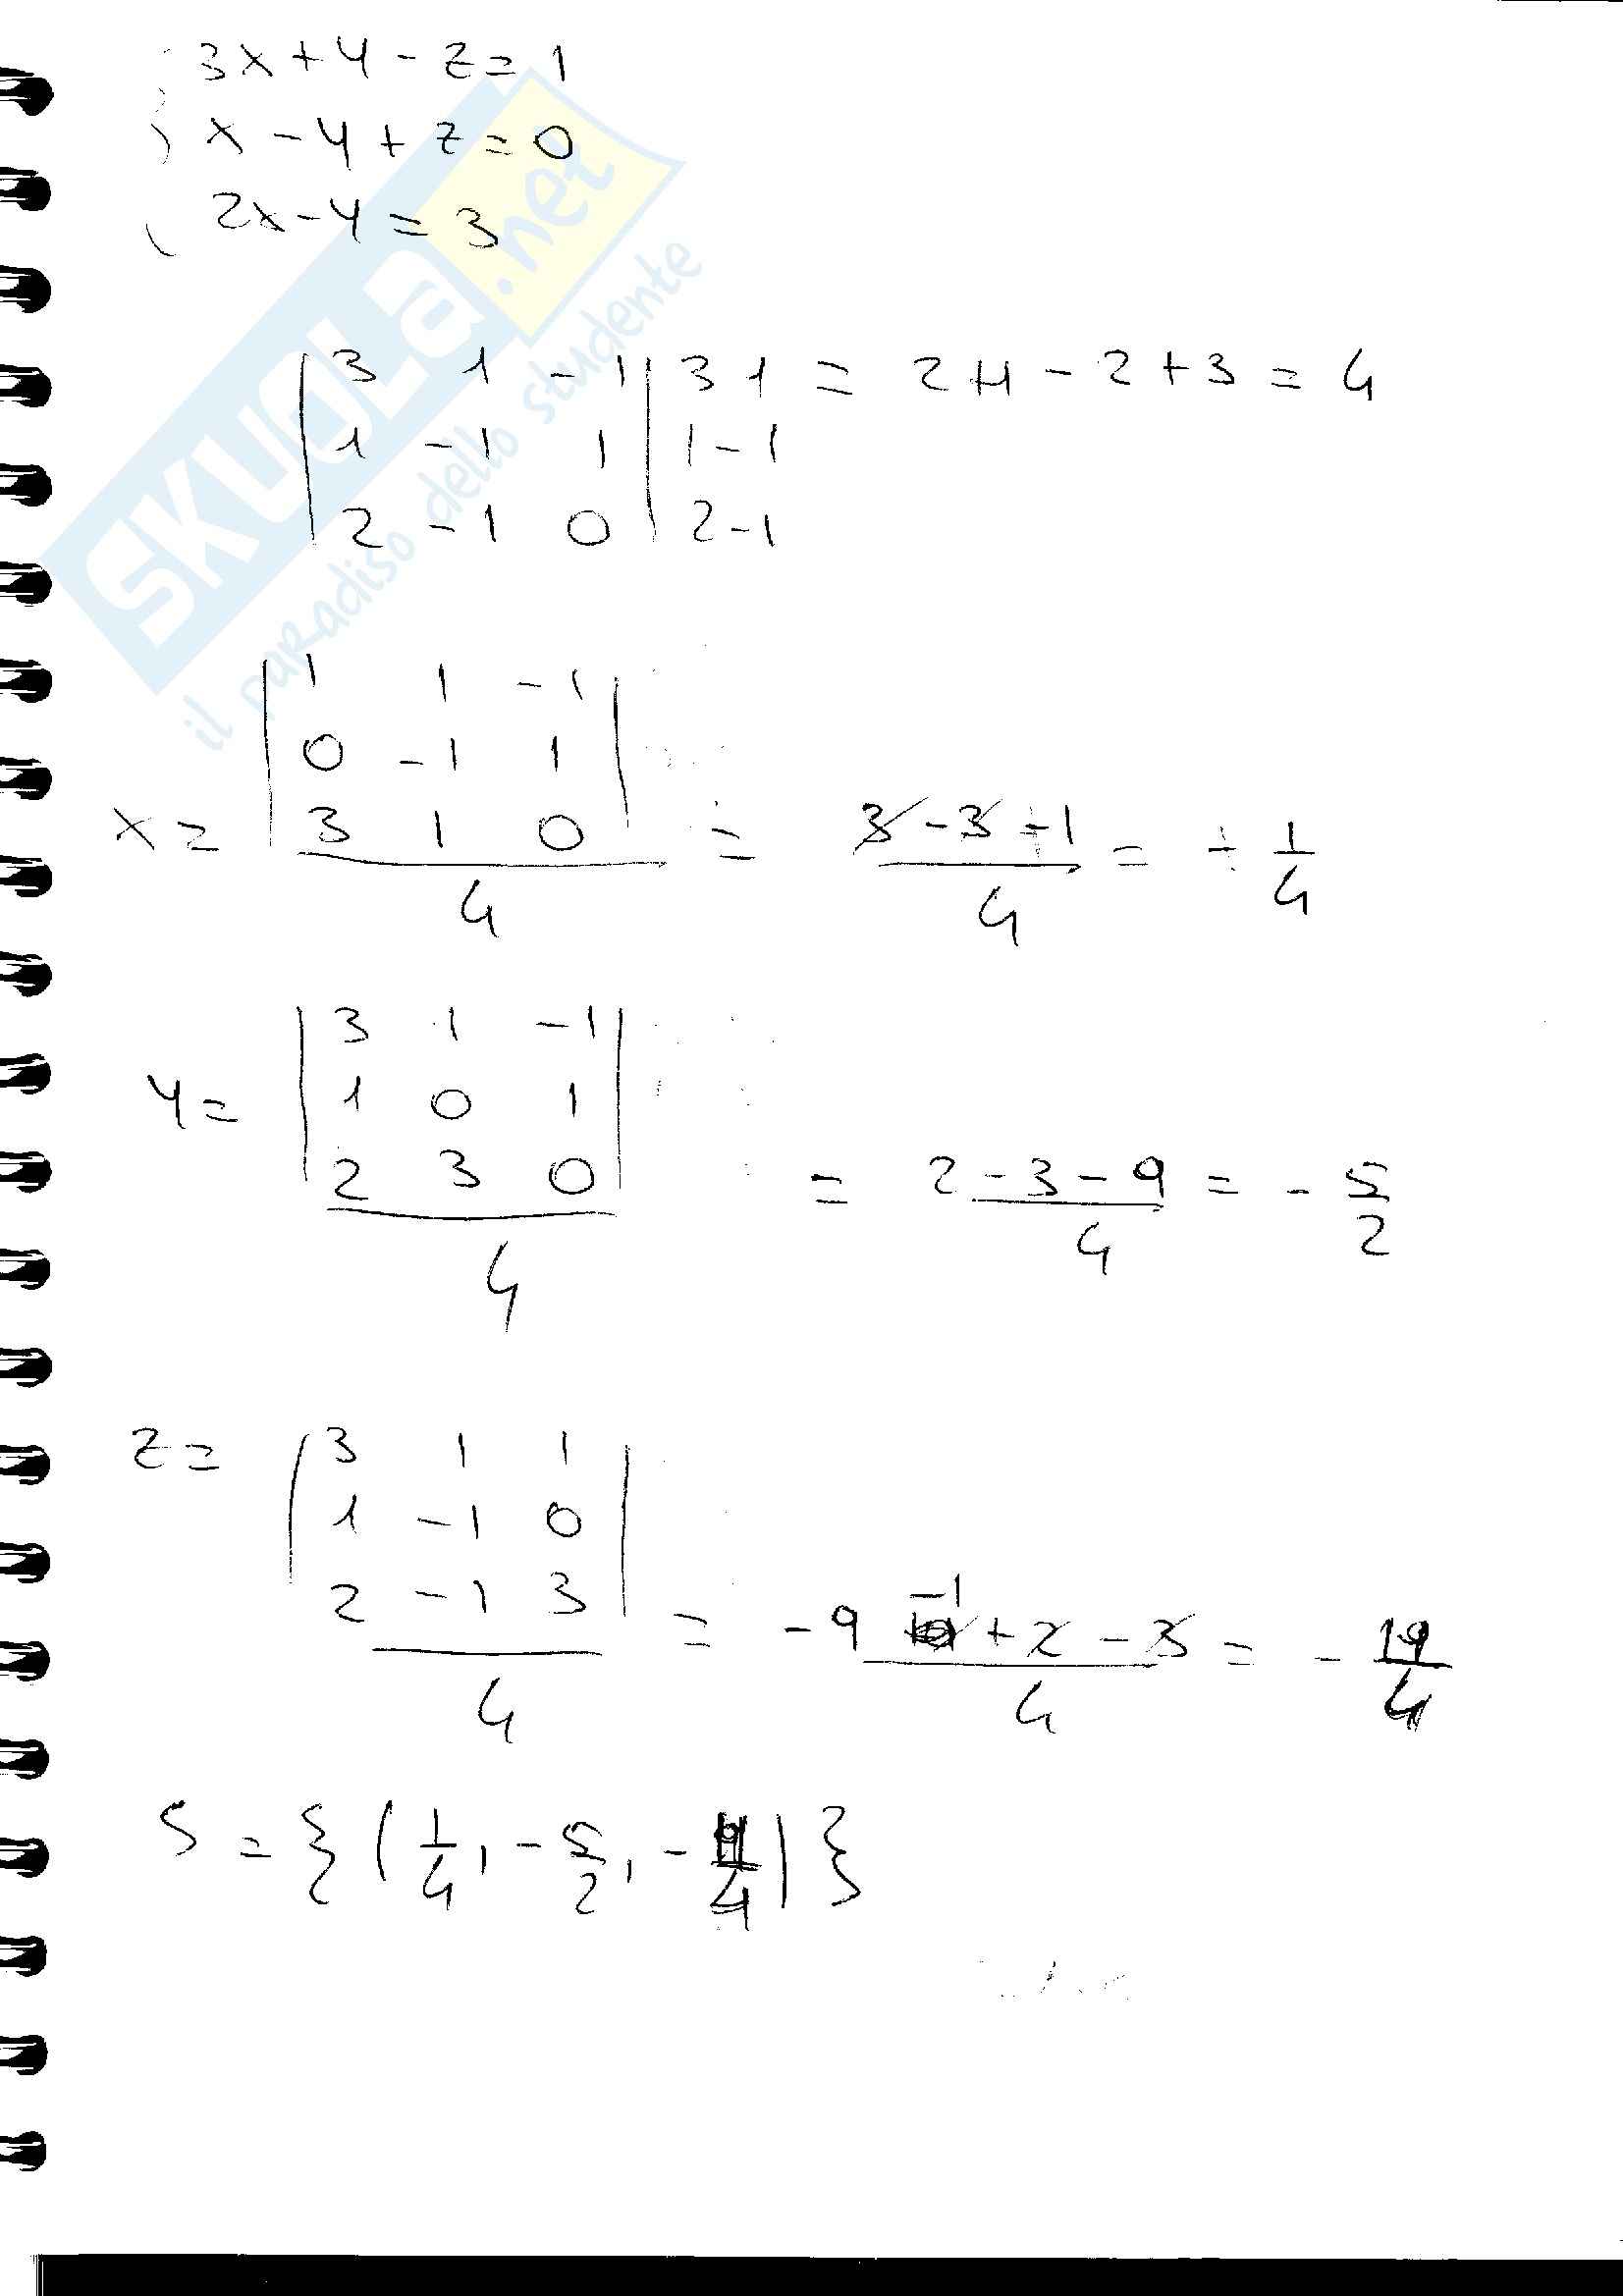 3x+y-z=1
x-y+z=0
2x-y=3
SKUOLA.net
il paradiso dello studente
| 3 1 -1 | 3 1 = 2+1-2+3=4
| 1 -1 1 | 1 -1
| 2 -1 0 | 2 -1
| 1 1 -1 |
| 0 -1 1 |
x= | 3 1 0 | = 3-3+1 = + 1
4 4 4
| 3 1 -1 |
y= | 1 0 1 |
| 2 3 0 | = 2-3-9 = - 5
4 4 2
z= | 3 1 1 |
| 1 -1 0 |
| 2 -1 3 | = -9 -1 +2-3 = -
4 4 4
S={(1/4, -5/2, - /4)}